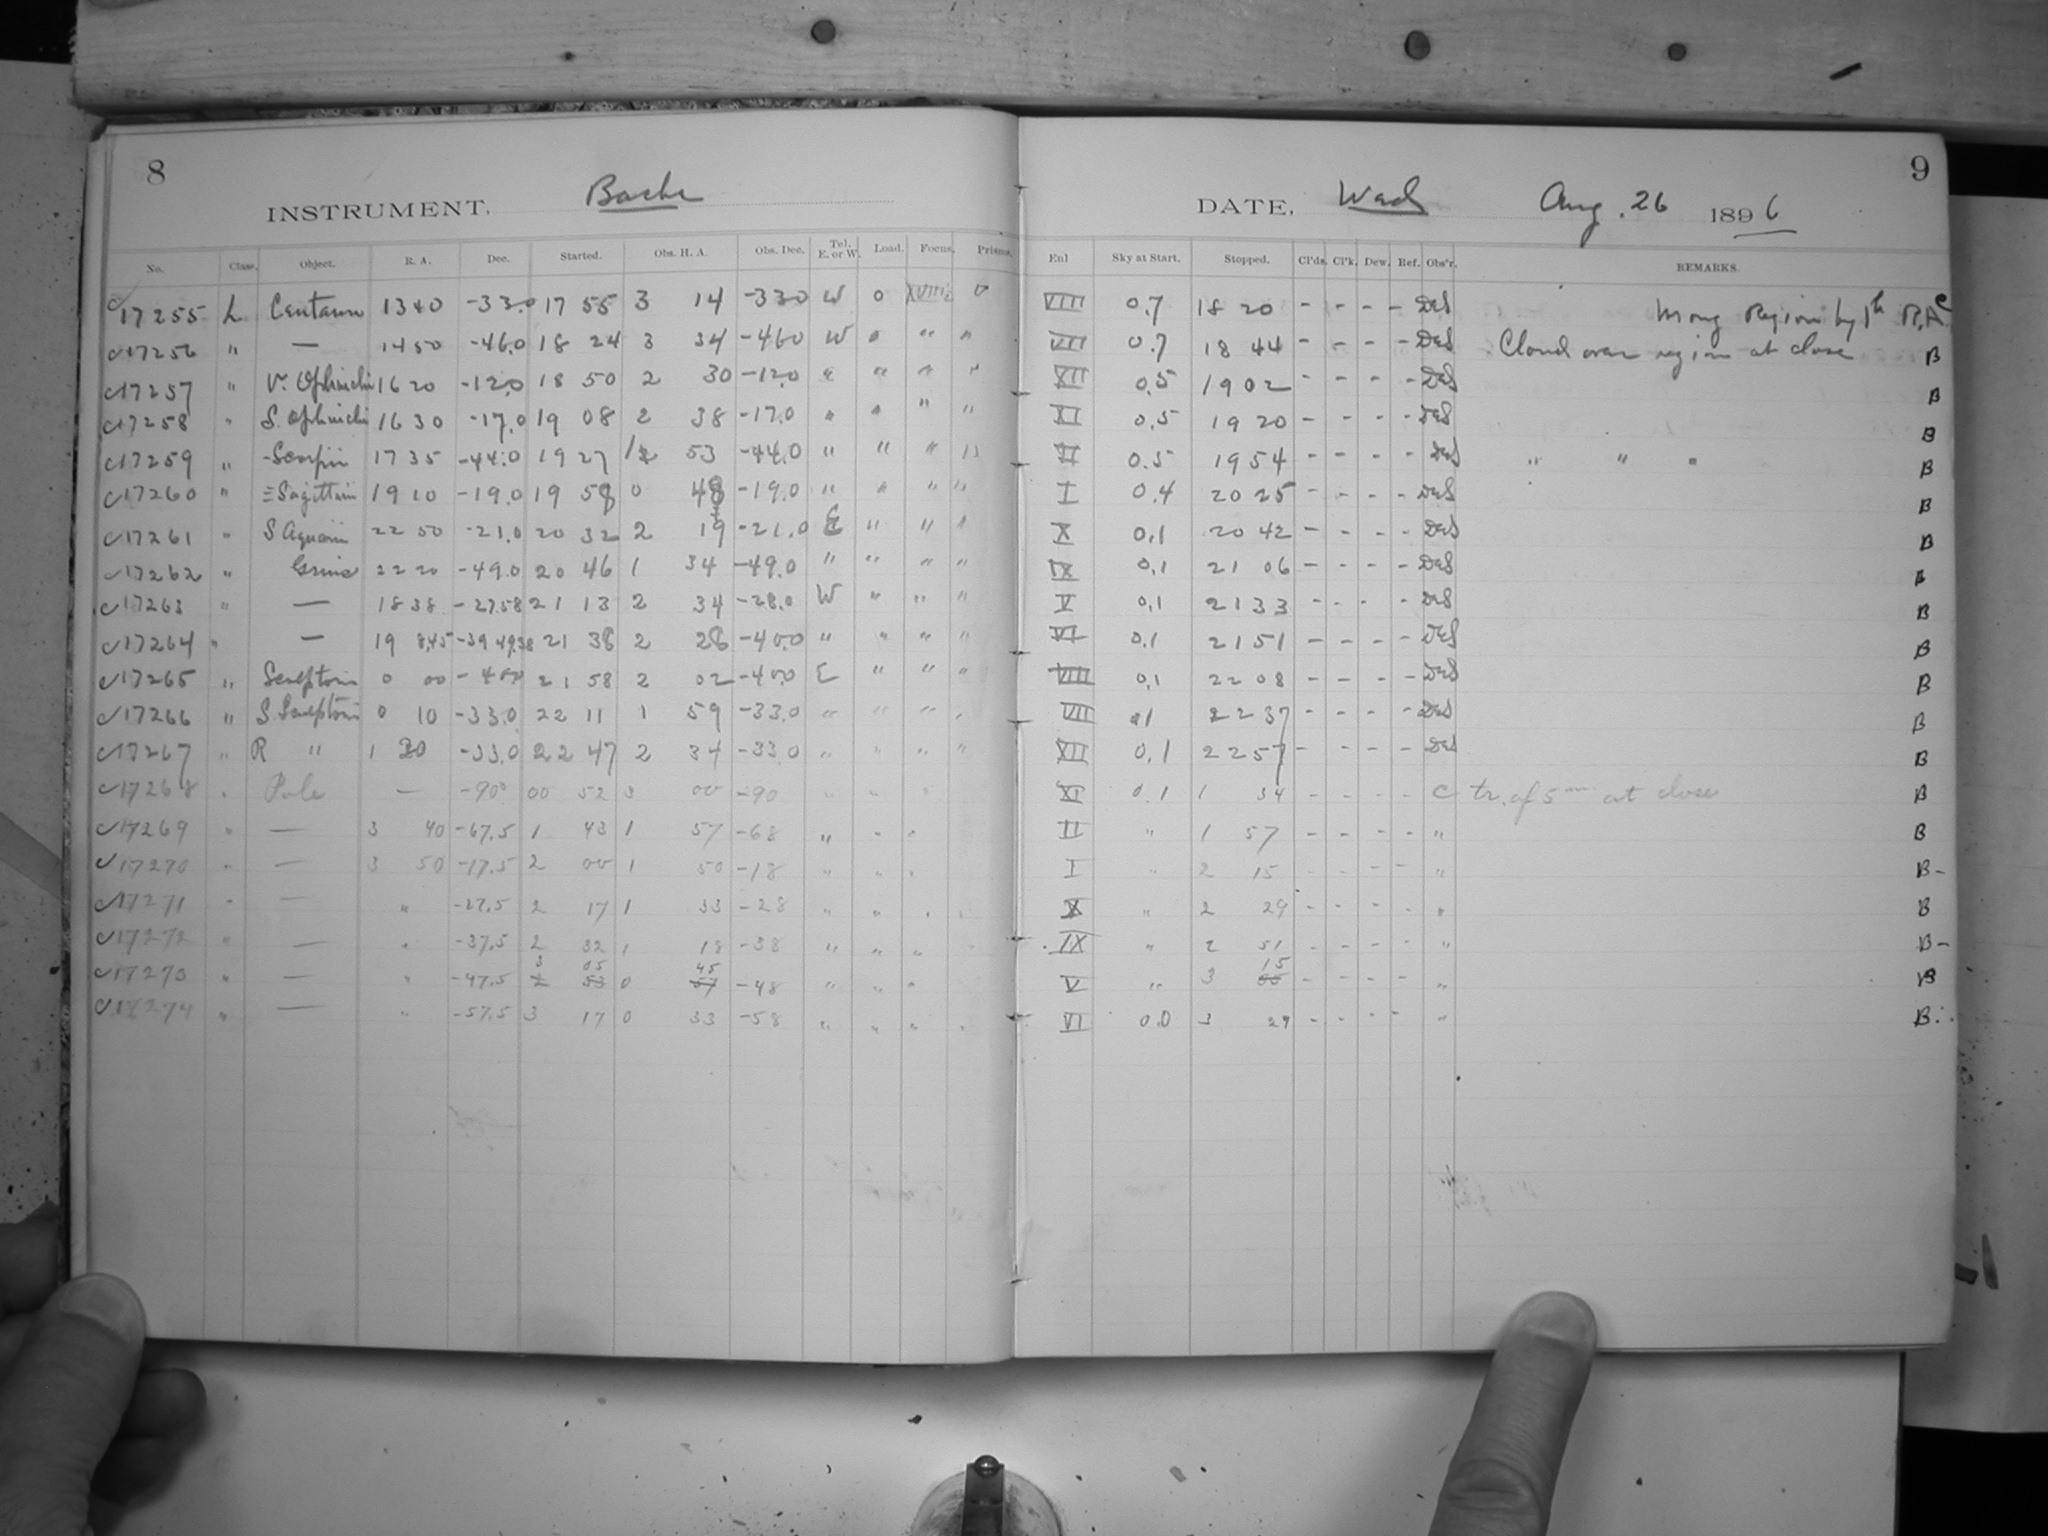 8
INSTRUMENT, Bache
No. Class. Object. R. A. Dec. Started. Obs. H. A. Obs. Dec. Tel. E. or W. Load. Focus. Prisms.
17255 L Centauri 13 40 -33.0 17 55 3 14 -33.0 W 0 0
17256 " — 14 50 -46.0 18 24 3 34 -46.0 W 0 " "
17257 " V. Ophiuchi 16 20 -12.0 18 50 2 30 -12.0 E " " "
17258 " S. Ophiuchi 16 30 -17.0 19 08 2 38 -17.0 " " " "
17259 " Scorpii 17 35 -44.0 19 27 53 -44.0 " " " "
17260 " Sagittarii 19 10 -19.0 19 58 0 48 -19.0 " " " "
17261 " S Aquarii 22 50 -21.0 20 32 2 19 -21.0 E " " "
17262 " Gruis 22 20 -49.0 20 46 1 34 -49.0 " " " "
17263 " — 18 38 -27.58 21 13 2 34 -28.0 W " " "
17264 " — 19 8.45 -39 49.38 21 38 2 26 -40.0 " " " "
17265 " Sculptoris 0 00 -40.0 21 58 2 02 -40.0 E " " "
17266 " S. Sculptoris 0 10 -33.0 22 11 1 59 -33.0 " " " "
17267 " R " 1 20 -33.0 22 47 2 34 -33.0 " " " "
17268 " Pole — -90° 00 52 3 00 -90 " " "
17269 " — 3 40 -67.5 1 43 1 57 -68 " " "
17270 " — 3 50 -17.5 2 00 1 50 -18 " " "
17271 " — " -27.5 2 17 1 33 -28 " " " "
17272 " — " -37.5 2 32 1 18 -38 " " " "
17273 " — " -47.5 3 05 0 45 -48 " " "
17274 " — " -57.5 3 17 0 33 -58 " " " "
9
DATE, Wed Aug. 26 1896
Enl Sky at Start. Stopped. Cl'ds. Cl'k. Dew. Ref. Obs'r. REMARKS.
VIII 0.7 18 20 - - - - DeS Wrong Region by 1h R.A. C
VII 0.7 18 44 - - - - DeS Cloud over region at close B
XII 0.5 19 02 - - - - DeS B
XI 0.5 19 20 - - - - DeS B
II 0.5 19 54 - - - - DeS " " " B
I 0.4 20 25 - - - - DeS B
X 0.1 20 42 - - - - DeS B
IX 0.1 21 06 - - - - DeS B
V 0.1 21 33 - - - - DeS B
VI 0.1 21 51 - - - - DeS B
VIII 0.1 22 08 - - - - DeS B
VII 0.1 22 37 - - - - DeS B
XII 0.1 22 57 - - - - DeS B
XI 0.1 1 34 - - - - C tr. of 5m at close B
II " 1 57 - - - - " B
I " 2 15 - - - - " B-
X " 2 29 - - - - " B
IX " 2 51 - - - - " B-
V " 3 15 - - - - " B
VI 0.0 3 29 - - - - " B